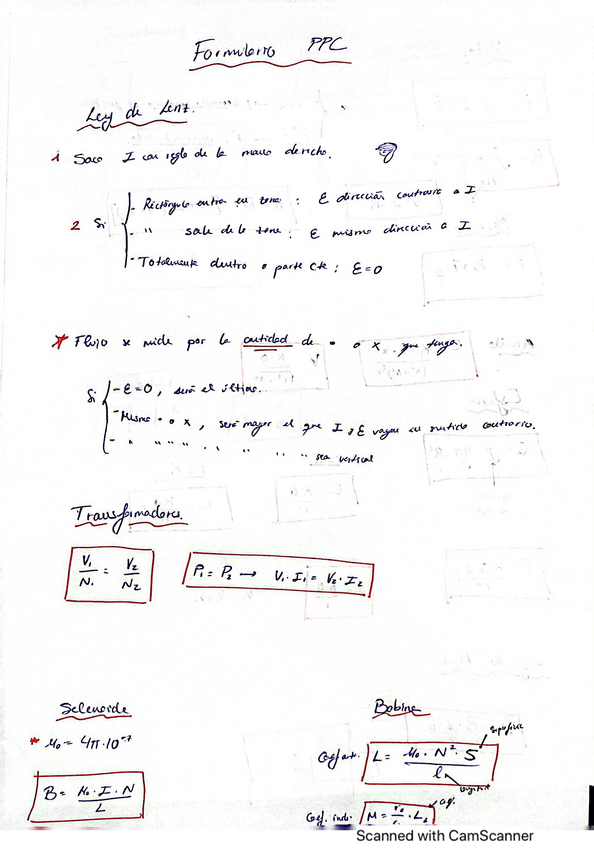 Formulario PPC
Ley de Lenz.
1 Saco I con regla de la mano derecha.
2 Si
- Rectángulo entra en zona : ε dirección contraria a I
- " sale de la zona : ε misma dirección a I
- Totalmente dentro o parte cte : ε=0
* Flujo se mide por la cantidad de • o x que tenga.
Si
- ε=0, será el último.
- Mismo • o x, será mayor el que I y ε vayan en sentido contrario.
- " " " " " " " " sea vertical
Transformadores
V₁/N₁ = V₂/N₂
P₁ = P₂ → V₁·I₁ = V₂·I₂
Solenoide
Bobina
* μ₀ = 4π·10⁻⁷
superficie
Coef. aut. L = μ₀·N²·S/l
longitud
B = μ₀·I·N/L
Coef. indu. M = · L₂
Scanned with CamScanner